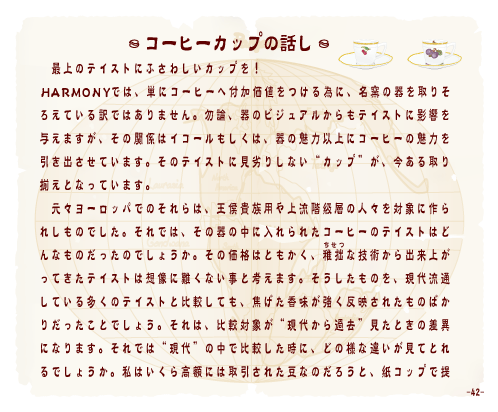 コーヒーカップの話し
最上のテイストにふさわしいカップを！
HARMONYでは、単にコーヒーへ付加価値をつける為に、名窯の器を取りそ
ろえている訳ではありません。勿論、器のビジュアルからもテイストに影響を
与えますが、その関係はイコールもしくは、器の魅力以上にコーヒーの魅力を
引き出させています。そのテイストに見劣りしない“カップ”が、今ある取り
揃えとなっています。
元々ヨーロッパでのそれらは、王侯貴族用や上流階級層の人々を対象に作ら
れしものでした。それでは、その器の中に入れられたコーヒーのテイストはど
んなものだったのでしょうか。その価格はともかく、稚拙な技術から出来上が
ちせつ
ってきたテイストは想像に難くない事と考えます。そうしたものを、現代流通
している多くのテイストと比較しても、焦げた香味が強く反映されたものばか
りだったことでしょう。それは、比較対象が“現代から過去”見たときの差異
になります。それでは“現代”の中で比較した時に、どの様な違いが見てとれ
るでしょうか。私はいくら高額には取引された豆なのだろうと、紙コップで提
-42-